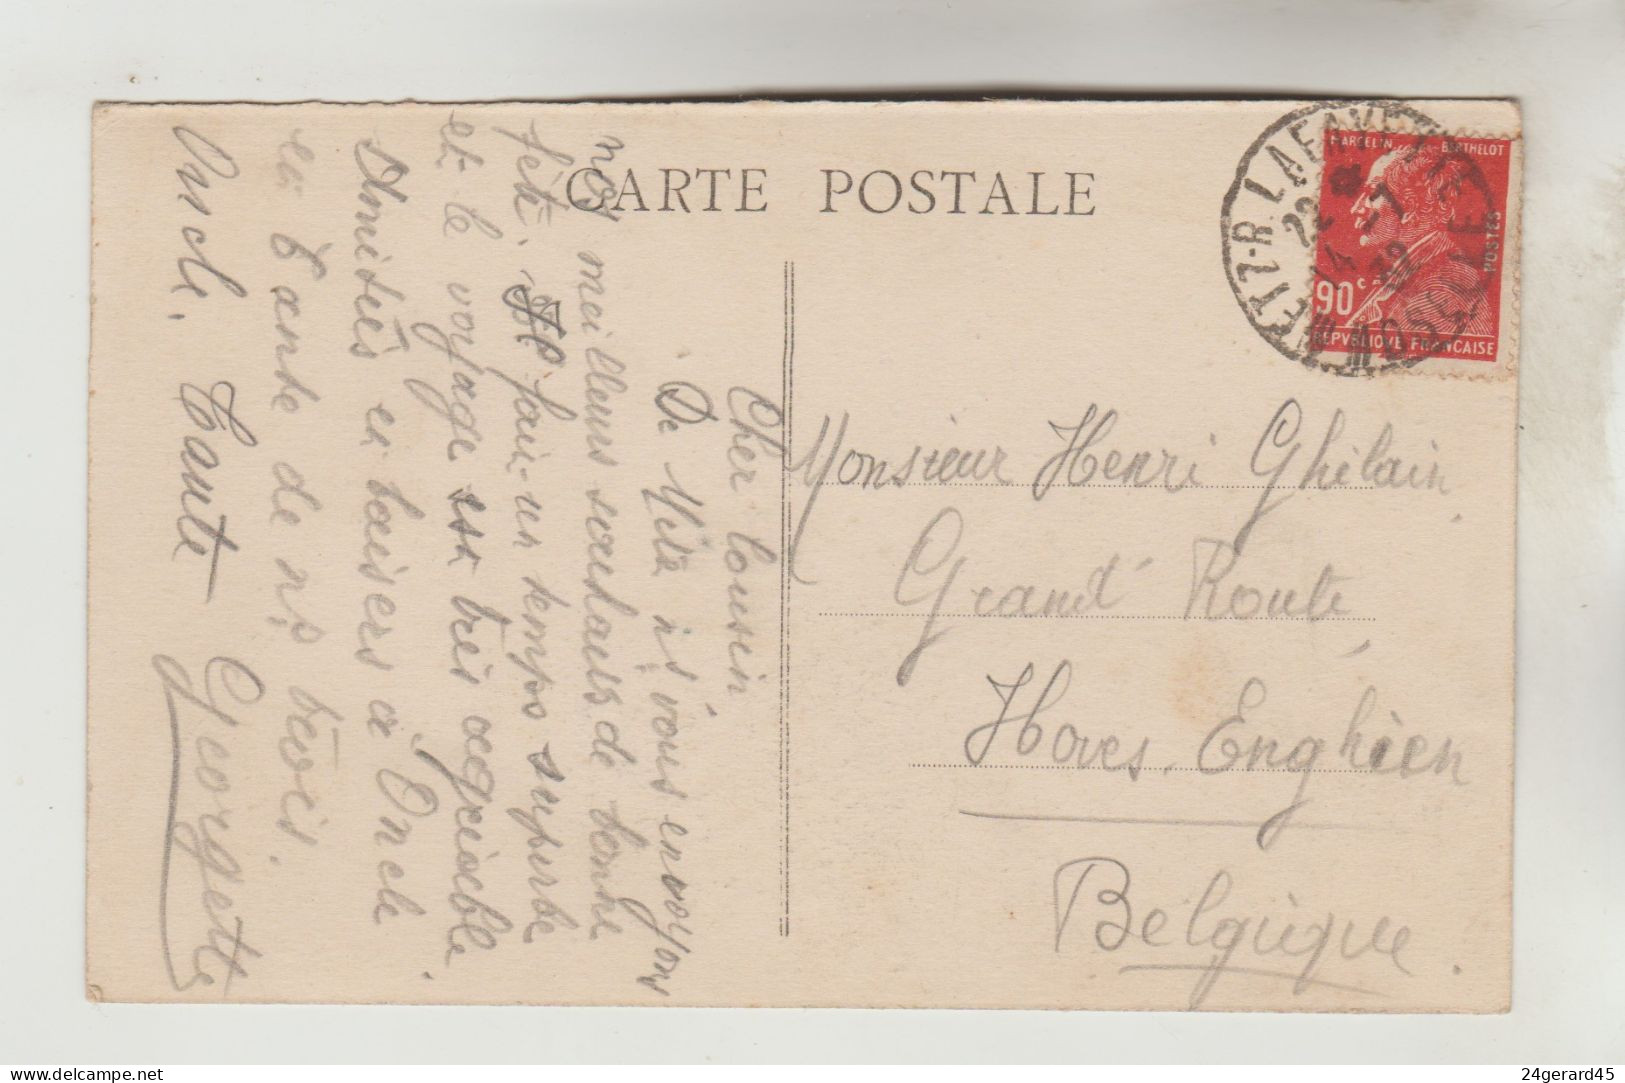 CARTE POSTALE
Cher Cousin,
De Metz ns vous envoyons
nos meilleurs souhaits de bonne
fête. Il fait un temps superbe
et le voyage est très agréable.
Amitiés et baisers à Oncle
et Tante de ns trois.
Oncle, Tante Georgette
METZ-R. LAFAYETTE
22
14 -7
32
MOSELLE
MARCELIN BERTHELOT
POSTES
90c
REPVBLIQVE FRANÇAISE
Monsieur Henri Ghilain
Grand' Route
Hoves. Enghien
Belgique.
24gerard45